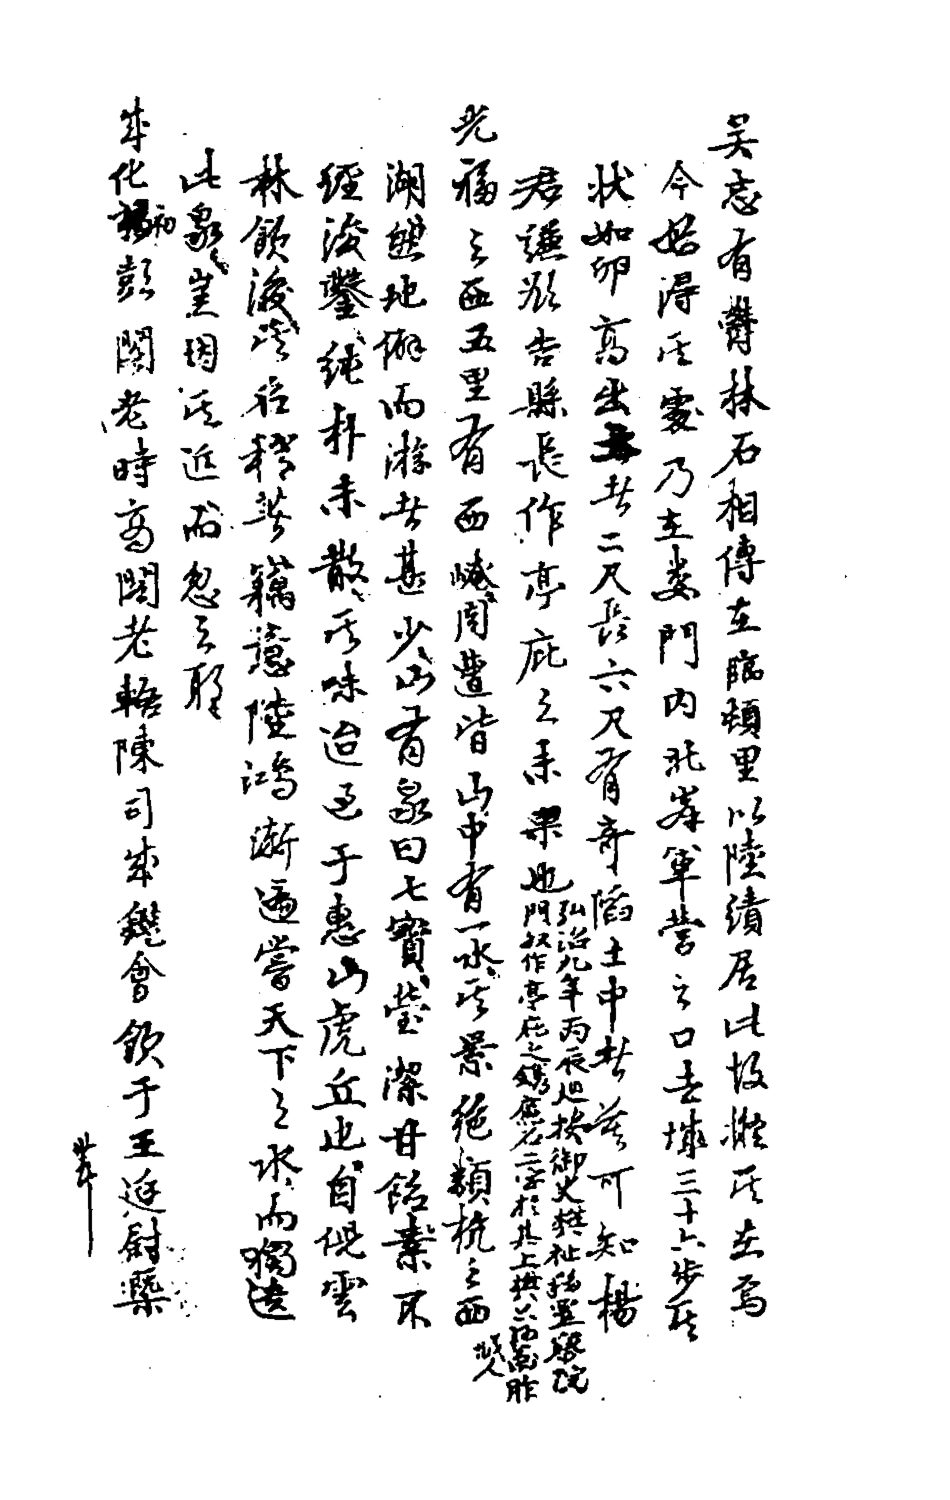 吴志有欝林石相傳在臨頓里以陸績居此故擬其在焉
今始得其處乃在婁門内北峯軍營之口去城三十六步所
状如卵高出土者二尺長六尺有奇陷土中者莫可知楊
君謙欲告縣長作亭庇之未果也
弘治九年丙辰廵按御史樊祉移置察院
門內作亭庇之鐫廉石二字於其上樊
光福之西五里有西崦周遭皆山中有一水其景絶類杭之西
湖然地僻而游者甚少山有泉曰七寳瑩潔甘飴素不
經浚鑿純朴未散其味迨過于惠山虎丘也自倪雲
林飲後嘆往稱茶藉意陸鴻漸遍嘗天下之水而獨遺
此泉豈因其近而忽之耶
成化初彭閣老時商閣老輅陳司成鑑會飲于王廷尉槩